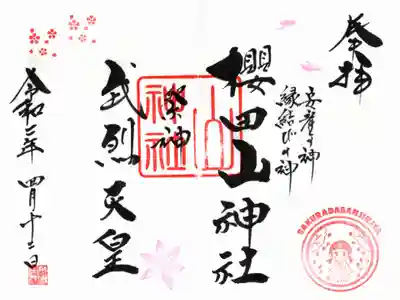 奉拝
安産の神
縁結びの神
櫻田山神社
山神社
祭神
武烈天皇
令和二年 四月十二日